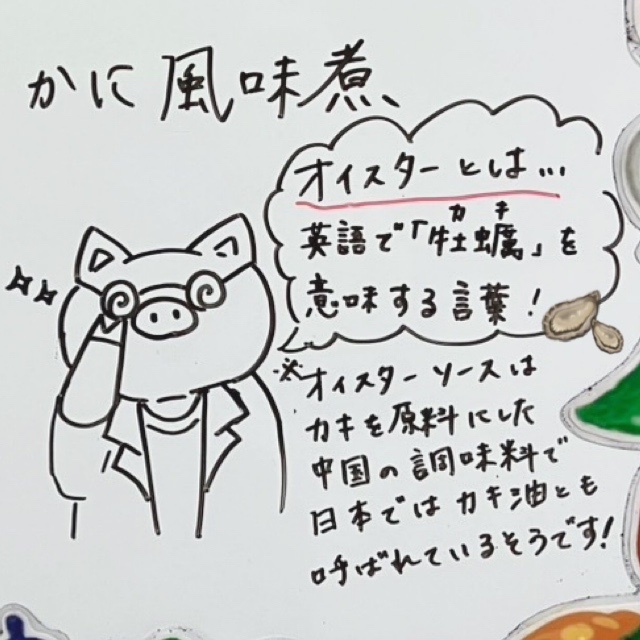 かに風味煮
オイスターとは…
カキ
英語で「牡蠣」を
意味する言葉！
※オイスターソースは
カキを原料にした
中国の調味料で
日本ではカキ油とも
呼ばれているそうです！